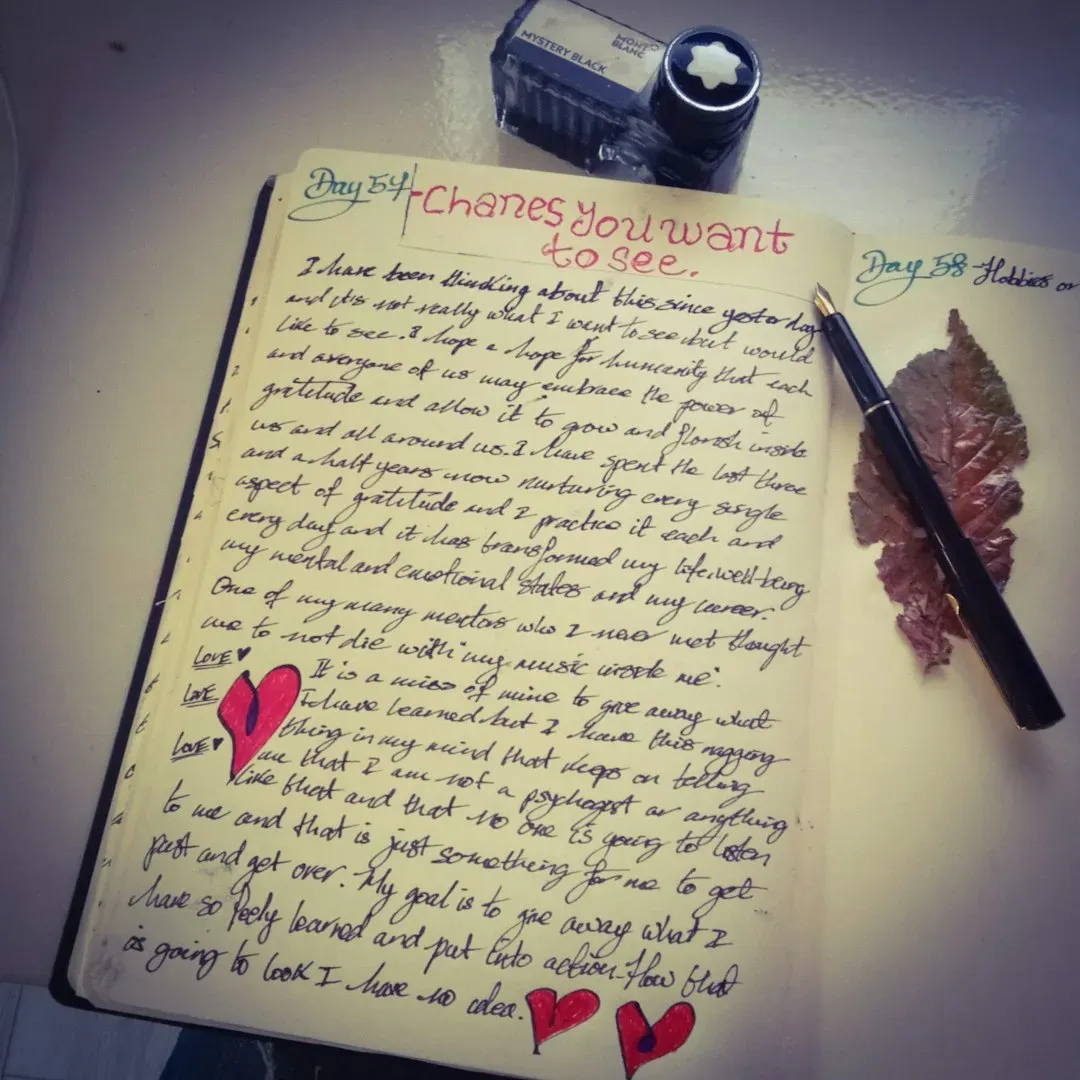 MONT
BLANC
MYSTERY BLACK
Day 54
-Chanes You want
to see.
I have been thinking about this since yesterday
and it's not really what I want to see but would
like to see. I hope a hope for humanity that each
and everyone of us may embrace the power of
gratitude and allow it to grow and florish inside
us and all around us. I have spent the last three
and a half years now nurturing every single
aspect of gratitude and I practice it each and
every day and it has transformed my life, well-being
my mental and emotional states and my career.
One of my many mentors who I never met thought
me to not die with "my music inside me".
LOVE ♥
It is a miss of mine to give away what
LOVE
I have learned but I have this nagging
thing in my mind that keps on telling
LOVE ♥
me that I am not a psychogst or anything
like that and that no one is going to listen
to me and that is just something for me to get
past and get over. My goal is to give away what I
have so feely learned and put into action-How that
is going to look I have no idea.
Day 58 - Hobbies or